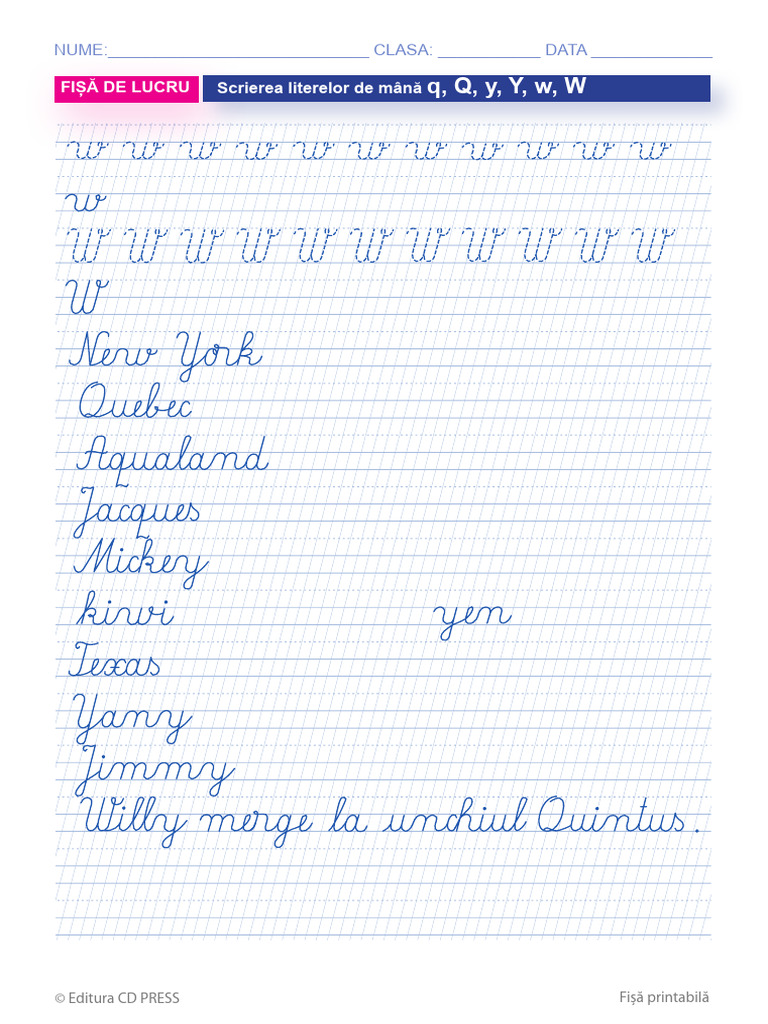 NUME:____________________________ CLASA: ___________ DATA _____________
FIȘĂ DE LUCRU Scrierea literelor de mână q, Q, y, Y, w, W
w w w w w w w w w w w
w
W W W W W W W W W W W
W
New York
Quebec
Aqualand
Jacques
Mickey
kiwi yen
Texas
Yamy
Jimmy
Willy merge la unchiul Quintus.
© Editura CD PRESS Fișă printabilă